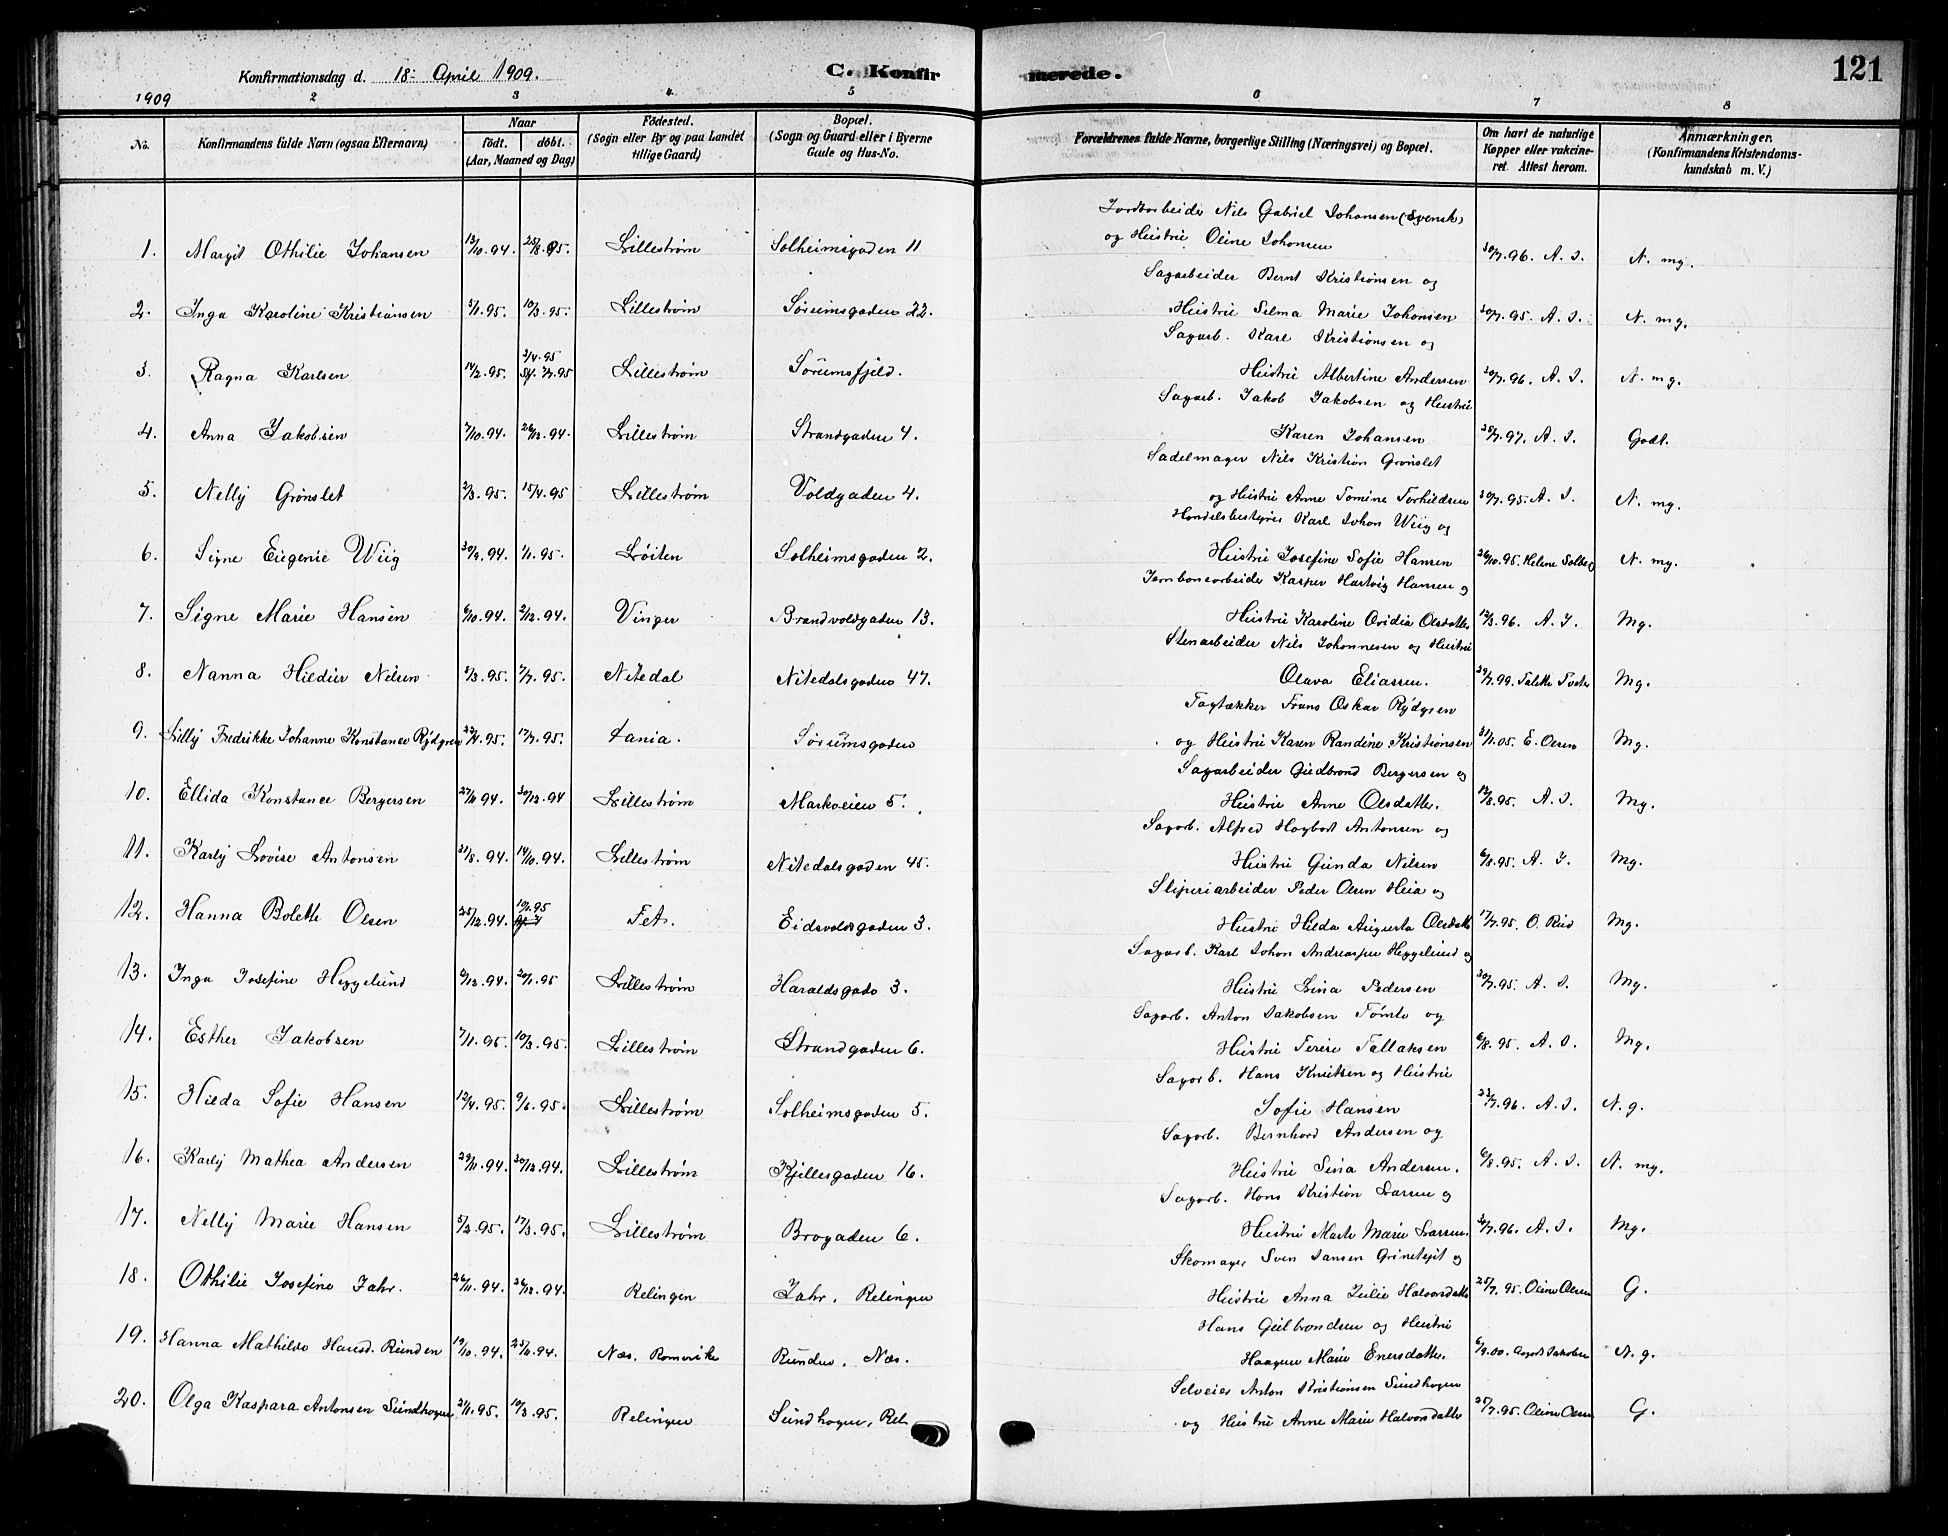 Konfirmationsdag d. 18. April 1909.
C. Konfirmerede.
121
1909
2 3 4 5 6 7 8
No.
Konfirmandens fulde Navn (ogsaa Efternavn)
Naar
født. døbt.
(Aar, Maaned og Dag)
Fødested.
(Sogn eller By og paa Landet
tillige Gaard)
Bopæl.
(Sogn og Gaard eller i Byerne
Gade og Hus-No.
Forældrenes fulde Navne, borgerlige Stilling (Næringsvei) og Bopæl.
Om havt de naturlige
Kopper eller vakcine-
ret. Attest herom.
Anmærkninger.
(Konfirmandens Kristendoms-
kundskab m. V.)
Jordarbeider Nils Gabriel Johansen (svensk)
1. Margit Othilie Johansen 13/10.94. 25/8.95. Lillestrøm Solheimsgaden 11 og Hustru Oline Johansen 30/7.96. A. J. N. mg.
Sagarbeider Bernt Kristiansen og
2. Inga Karoline Kristiansen 5/1.95. 10/3.95. Lillestrøm Sørumsgaden 22. Hustru Selma Marie Johansen 30/7.95. A. J. N. mg.
Sagarb. Karl Kristiansen og
3. Ragna Karlsen 14/2.95. 3/4.95 Lillestrøm Sørumsfjeld. Hustru Albertine Andersen 30/7.96. A. J. N. mg.
Sagarb. Jakob Jakobsen og Hustru
4. Anna Jakobsen 7/10.94. 26/12.94. Lillestrøm Strandgaden 4. Karen Johansen 30/7.97. A. J. Godt.
Sadelmager Nils Kristian Grønslet
5. Nelly Grønslet 2/3.95. 15/4.95 Lillestrøm Voldgaden 4. og Hustru Anne Tomine Torkildsen 30/7.95. A. J. N. mg.
Handelsbestyrer Karl Johan Wiig og
6. Signe Eugenie Wiig 30/9.94. 1/1.95. Løiten Solheimsgaden 2. Hustru Josefine Sofie Hansen 26/10.95. Helene Solberg N. mg.
Jernbanearbeider Kasper Hartvig Hansen og
7. Signe Marie Hansen 6/10.94. 2/12.94. Vinger Brandvoldgaden 13. Hustru Karoline Ovidia Olsdatter 12/3.96. A. J. Mg.
Stenarbeider Nils Johannesen og Hustru
8. Nanna Hildur Nilsen 3/3.95. 7/7.95. Nitedal Nitedalsgaden 47. Olava Eliassen. 29/7.99. Mg.
Tagtækker Frans Oskar Rydgren
9. Lilly Fredrikke Johanne Konstance Rydgren 22/4.95. 17/7.95. Sørumsgaden og Hustru Karen Randine Kristiansen 31/1.05. E. Olsen Mg.
Sagarbeider Gudbrand Bergersen og
10. Ellida Konstance Bergersen 27/11.94. 30/12.94 Lillestrøm Markveien 5. Hustru Anne Olsdatter. 12/8.95. A. J. Mg.
Sagarb. Alfred Hagbart Antonsen og
11. Karly Lovise Antonsen 31/8.94. 14/10.94. Lillestrøm Nitedalsgaden 45. Hustru Gunda Nilsen 6/8.95. A. J. Mg.
Sliperiarbeider Peder Olsen Heia og
12. Hanna Bolette Olsen 25/12.94. 10/1.95 Fet. Eidsvoldsgaden 3. Hustru Hilda Augusta Olsdatter 17/7.95. O. Rud Mg.
Sagarb. Karl Johan Andreassen Heggelund og
13. Inga Josefine Heggelund 9/12.94. 20/1.95 Lillestrøm Haraldsgade 3. Hustru Lina Pedersen 30/7.95. A. J. Mg.
Sagarb. Anton Jakobsen Tømte og
14. Esther Jakobsen 7/1.95. 10/3.95. Lillestrøm Strandgaden 6. Hustru Terese Tallaksen 6/8.95. A. J. Mg.
Sagarb. Hans Knutsen og Hustru
15. Hilda Sofie Hansen 12/4.95. 9/6.95. Lillestrøm Solheimsgaden 5. Sofie Hansen 22/7.96. A. J. N. g.
Sagarb. Bernhard Andersen og
16. Karly Mathea Andersen 29/11.94. 30/12.94. Lillestrøm Kjellesgaden 16. Hustru Lina Andersen. 6/8.95. A. J. N. mg.
Sagarb. Hans Kristian Larsen og
17. Nelly Marie Hansen 5/2.95. 17/3.95. Lillestrøm Brogaden 6. Hustru Marte Marie Larsen. 30/7.96. A. J. Mg.
Skomager Sven Jansen og
18. Othilie Josefine Jahr. 26/11.94. 26/12.94. Relingen Jahr, Relingen Hustru Anna Julie Halvorsdatter 25/7.95. Oline Olsen G.
Hans Gulbrandsen og Hustru
19. Hanna Mathilde Hansd. Runden 19/10.94. 25/11.94. Næs. Romerike Runden, Næs. Haagine Marie Enersdatter. 6/9.00. N. g.
Selveier Anton Kristiansen Sundhagen
20. Olga Kaspara Antonsen Sundhagen 21/1.95. 10/3.95. Relingen Sundhagen, Rel og Hustru Anne Marie Halvorsdatter 25/7.95. Oline Olsen G.